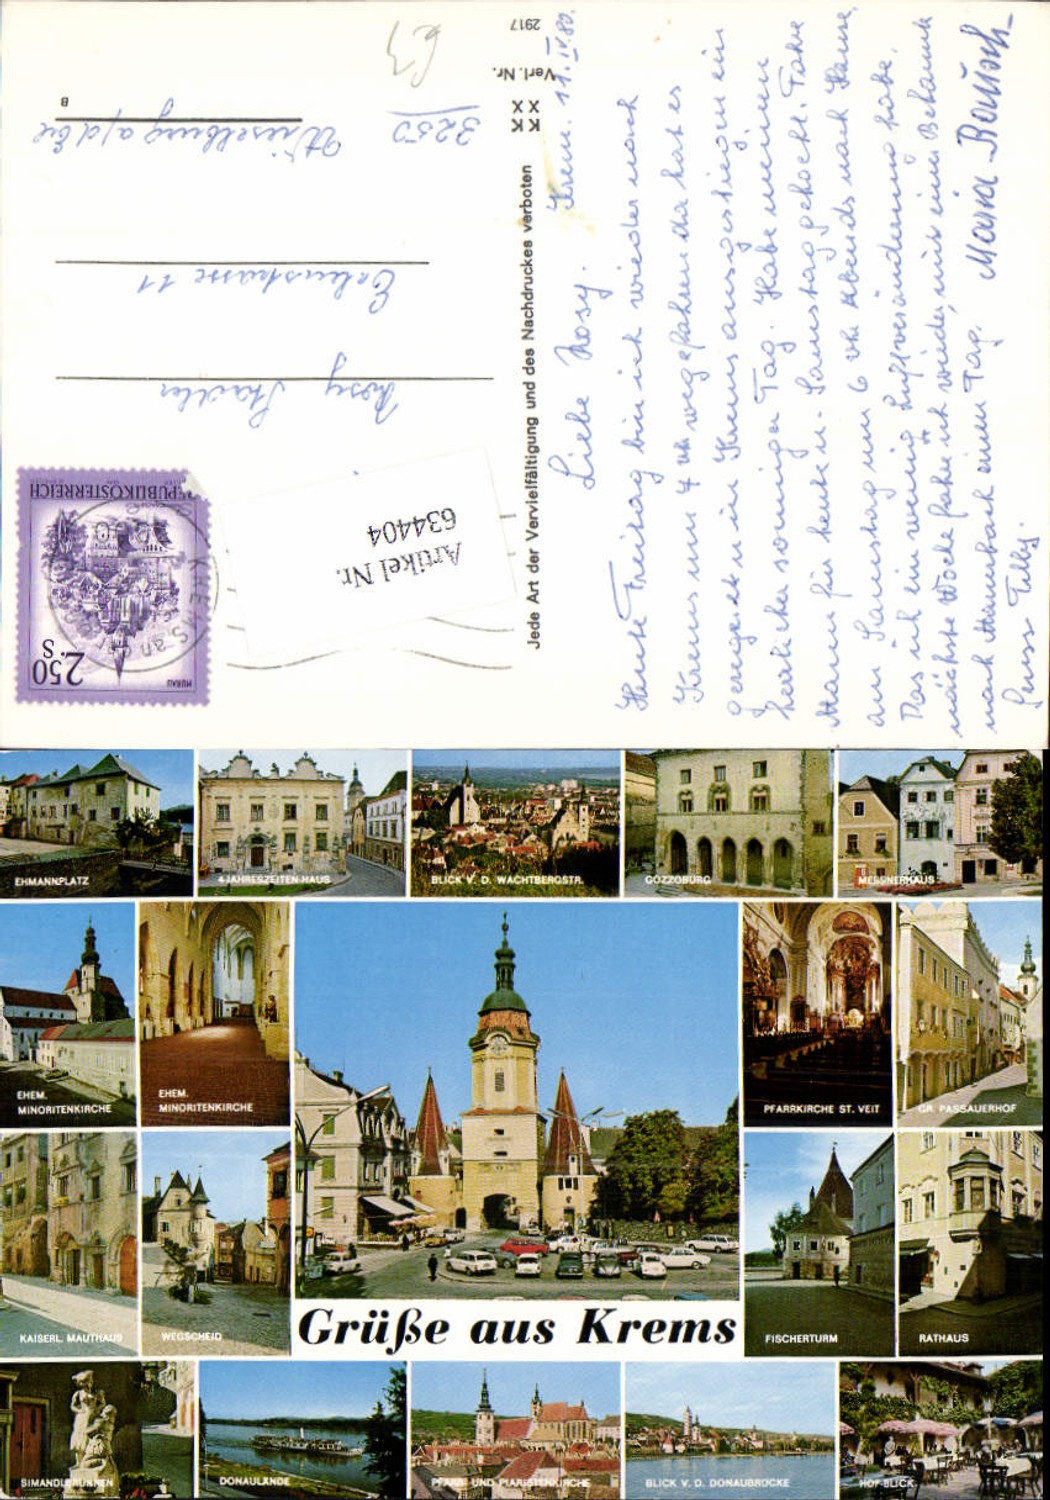 2917
63
Verl. Nr.
KK
XX
Jede Art der Vervielfältigung und des Nachdruckes verboten
B
Krem. 11. IV. 80.
Liebe Rosy.
Heute Freitag bin ich wieder nach
Krems um 4 Uhr weggefahren da hat es
geregnet u. in Krems ausgestiegen ein
herrlicher sonniger Tag. Habe meinen
Mann für heute u. Samstag gekocht. Fahre
am Samstag um 6 Uhr Abends nach Hause.
Das ich ein wenig Luftveränderung habe.
nächste Woche fahre ich wieder mit einer Bekannte
nach Mauerbach einen Tag.
Maria
Rosy Stadler
Erlenstrasse 11
3250 Wieselburg a/d Erl
Artikel Nr.
634404
REPUBLIK ÖSTERREICH
S 2.50
MURAU
KREMS an der
EHMANNPLATZ
4 JAHRESZEITEN-HAUS
BLICK V. D. WACHTBERGSTR.
GÖZZOBURG
MESSNERHAUS
EHEM.
MINORITENKIRCHE
EHEM.
MINORITENKIRCHE
PFARRKIRCHE ST. VEIT
GR. PASSAUERHOF
KAISERL. MAUTHAUS
WEGSCHEID
Grüße aus Krems
FISCHERTURM
RATHAUS
SIMANDLBRUNNEN
DONAULÄNDE
PFARR- UND PIARISTENKIRCHE
BLICK V. D. DONAUBRÜCKE
HOF-BLICK